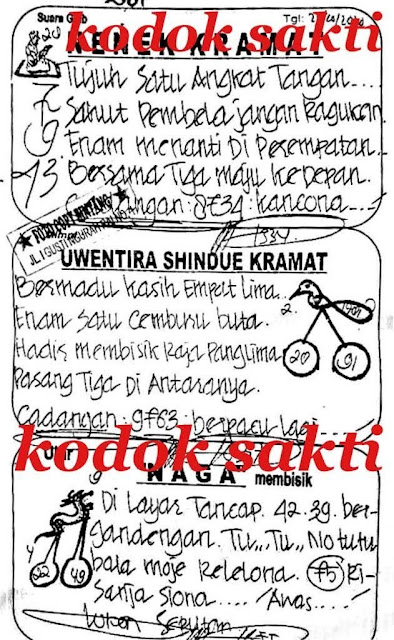 Suara Gaib
kodok sakti
KRAMAT
Tujuh Satu Angkat Tangan....
7
Sahut Pembela jangan Ragukan
9
Enam menanti Di Perempatan...
13
Bersama Tiga maju kedepan.
JL. I GUSTI NGURAH RAI NO.
1334
UWENTIRA SHINDUE KRAMAT
Bermadu kasih Empat Lima...
Enam Satu Cemburu buta.
2.
Hadis membisik Raja Panglima
20 91
Pasang Tiga Di Antaranya.
Cadangan: 9763: berpacu lagi....
kodok sakti
NAGA membisik
9
Di Layar Tancap. 42.39. ber-
gandengan. Tu,,, Tu,, No tutu
4
bala moje Kelelona. 75 Ri-
22 49
Sarija Siona.... Anas....